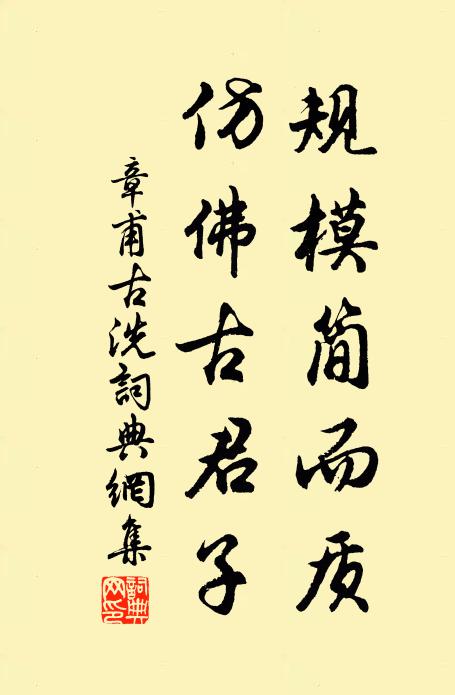 规模简而质
仿佛古君子
章甫古洗詞典網集
詞典
网印